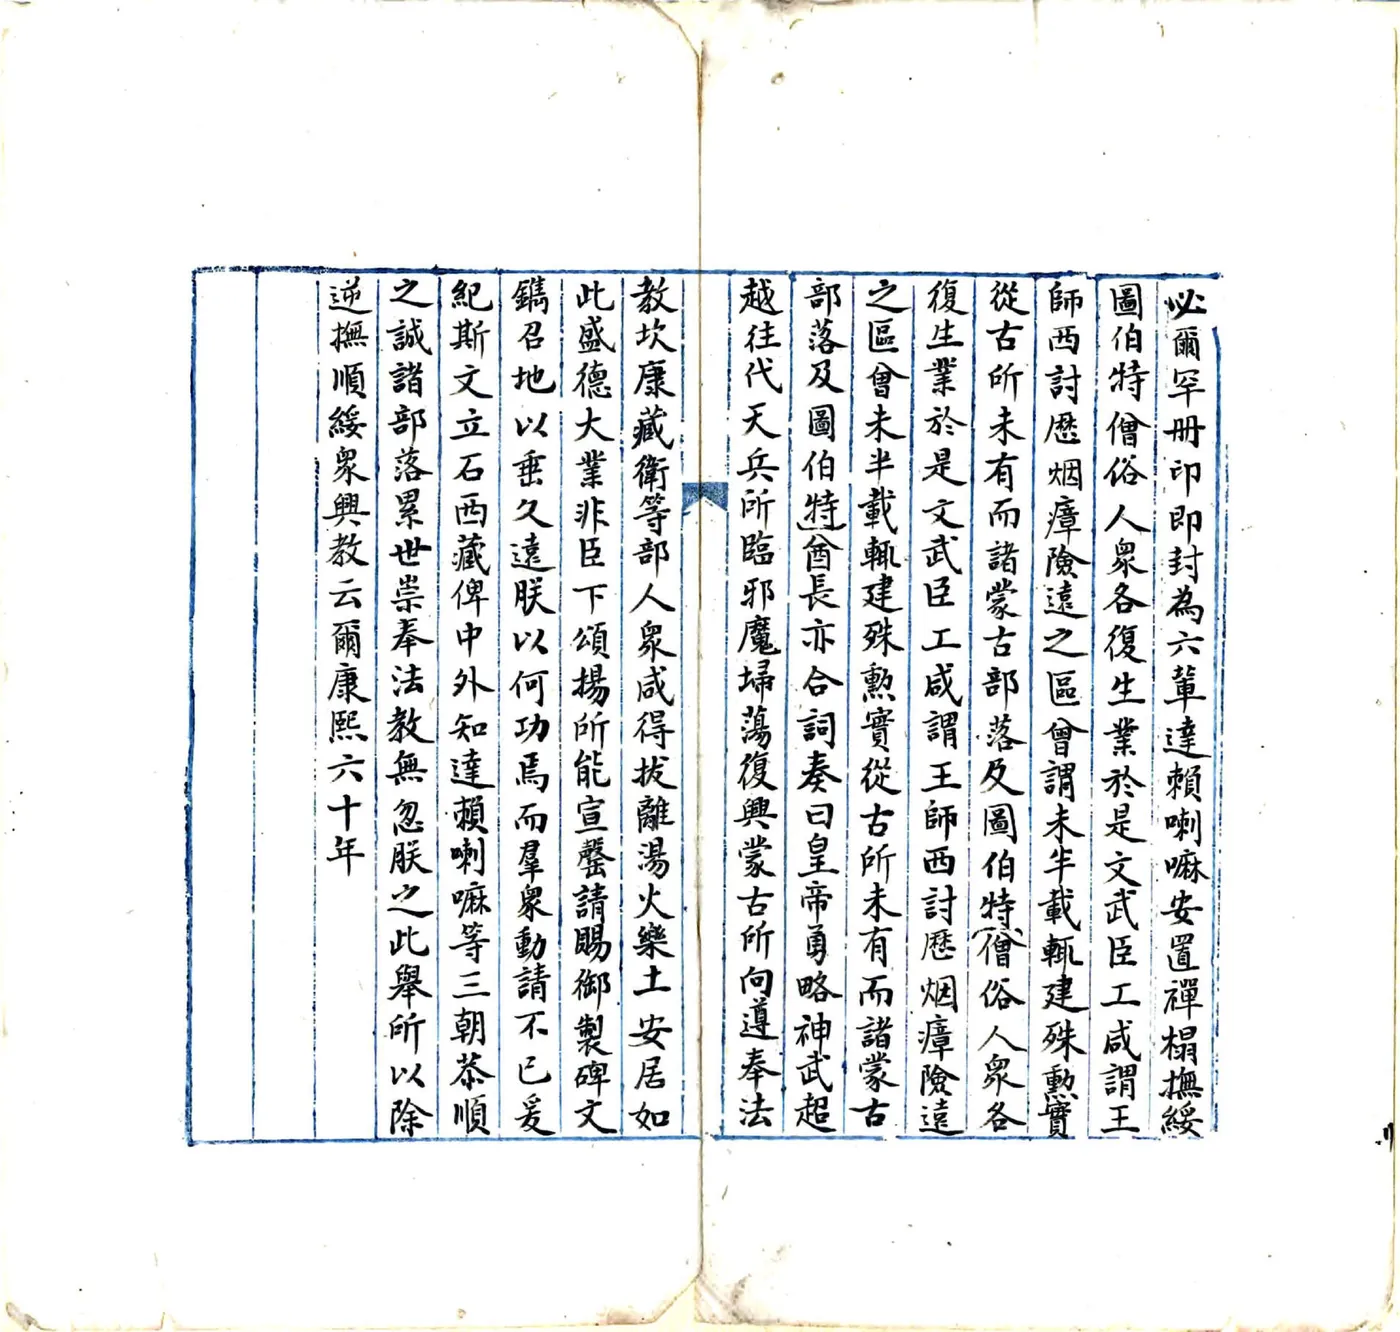 必爾罕冊印即封為六輩達賴喇嘛安置禪榻撫綏
圖伯特僧俗人衆各復生業於是文武臣工咸謂王
師西討歷烟瘴險遠之區曾謂未半載輒建殊勲實
從古所未有而諸蒙古部落及圖伯特僧俗人衆各
復生業於是文武臣工咸謂王師西討歷烟瘴險遠
之區曾未半載輒建殊勲實從古所未有而諸蒙古
部落及圖伯特酋長亦合詞奏曰皇帝勇略神武超
越往代天兵所臨邪魔埽蕩復興蒙古所向遵奉法
教坎康藏衛等部人衆咸得拔離湯火樂土安居如
此盛德大業非臣下頌揚所能宣罄請賜御製碑文
鐫召地以垂久遠朕以何功焉而羣衆動請不已爰
紀斯文立石西藏俾中外知達賴喇嘛等三朝恭順
之誠諸部落累世崇奉法教無忽朕之此舉所以除
逆撫順綏衆興教云爾康熙六十年